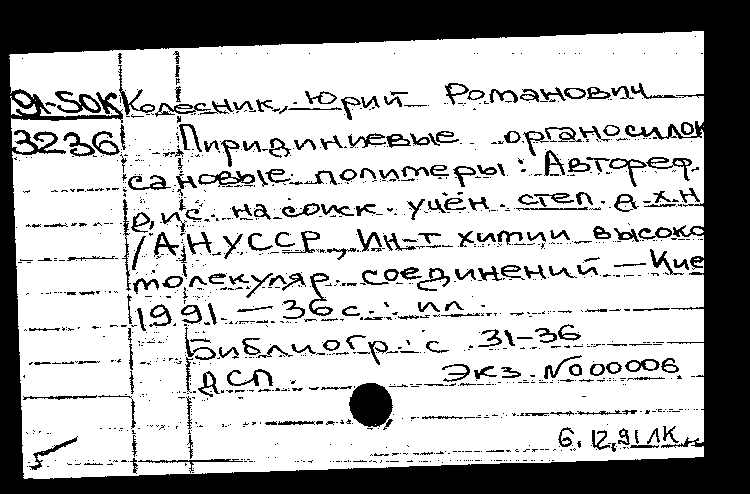 91-50К Колесник, Юрий Романович
3236 Пиридиниевые органосилок
сановые полимеры : Автореф.
дис. на соиск. учён. степ. д.х.н
/АН УССР, Ин-т химии высоко
молекуляр. соединений — Кие
1991. — 36 с. : ил.
Библиогр.: с. 31-36
ДСП. Экз. №000006
6.12.91 ЛК